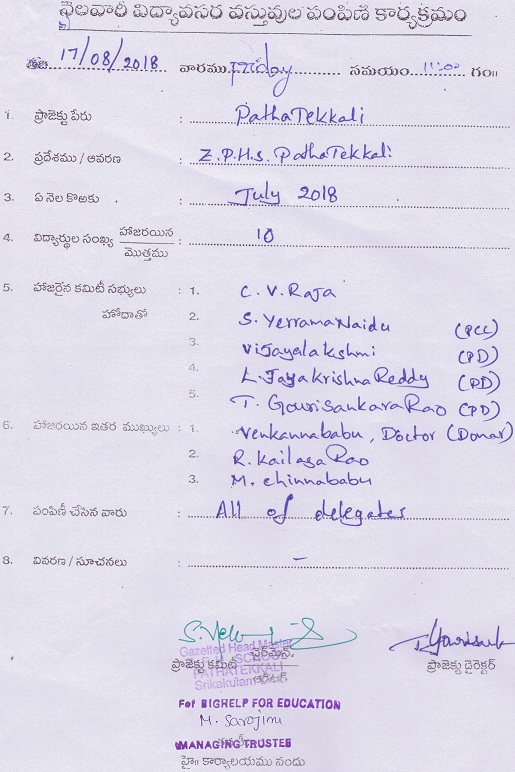 నెలవారీ విద్యావసర వస్తువుల పంపిణీ కార్యక్రమం
తేది 17/08/2018 వారము Friday సమయం 11:00 గం॥
1. ప్రాజెక్టు పేరు : PathaTekkali
2. ప్రదేశము / ఆవరణ : Z.P.H.S. PathaTekkali
3. ఏ నెల కొఱకు : July 2018
4. విద్యార్థుల సంఖ్య హాజరయిన / మొత్తము : 10
5. హాజరైన కమిటీ సభ్యులు : 1. C. V. Raja
హోదాతో 2. S. Yerrama Naidu (PCC)
3. Vijayalakshmi (PD)
4. L. Jaya Krishna Reddy (PD)
5. T. Gouri Sankara Rao (PD)
6. హాజరయిన ఇతర ముఖ్యులు : 1. Venkannababu, Doctor (Donar)
2. R. Kailasa Rao
3. M. Chinnababu
7. పంపిణీ చేసిన వారు : All of delegates
8. వివరణ / సూచనలు : –
Gazetted Head Master
ప్రాజెక్టు కమిటీ ఛైర్మన్, ప్రాజెక్టు డైరెక్టర్
PATHATEKKALI
Srikakulam
For BIGHELP FOR EDUCATION
M. Sarojinu
MANAGING TRUSTEE
హై॥ కార్యాలయము నందు